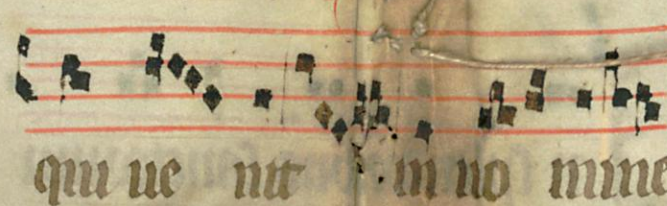 qui ue nit in no mine